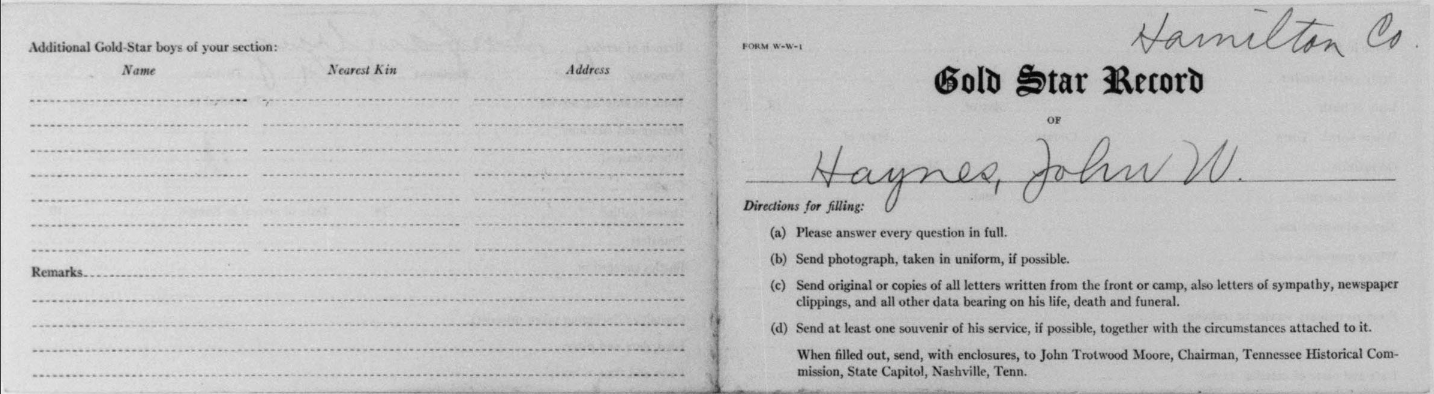 Additional Gold-Star boys of your section:
Name Nearest Kin Address
Remarks
FORM W-W-1
Hamilton Co.
Gold Star Record
OF
Haynes, John W.
Directions for filling:
(a) Please answer every question in full.
(b) Send photograph, taken in uniform, if possible.
(c) Send original or copies of all letters written from the front or camp, also letters of sympathy, newspaper
clippings, and all other data bearing on his life, death and funeral.
(d) Send at least one souvenir of his service, if possible, together with the circumstances attached to it.
When filled out, send, with enclosures, to John Trotwood Moore, Chairman, Tennessee Historical Com-
mission, State Capitol, Nashville, Tenn.